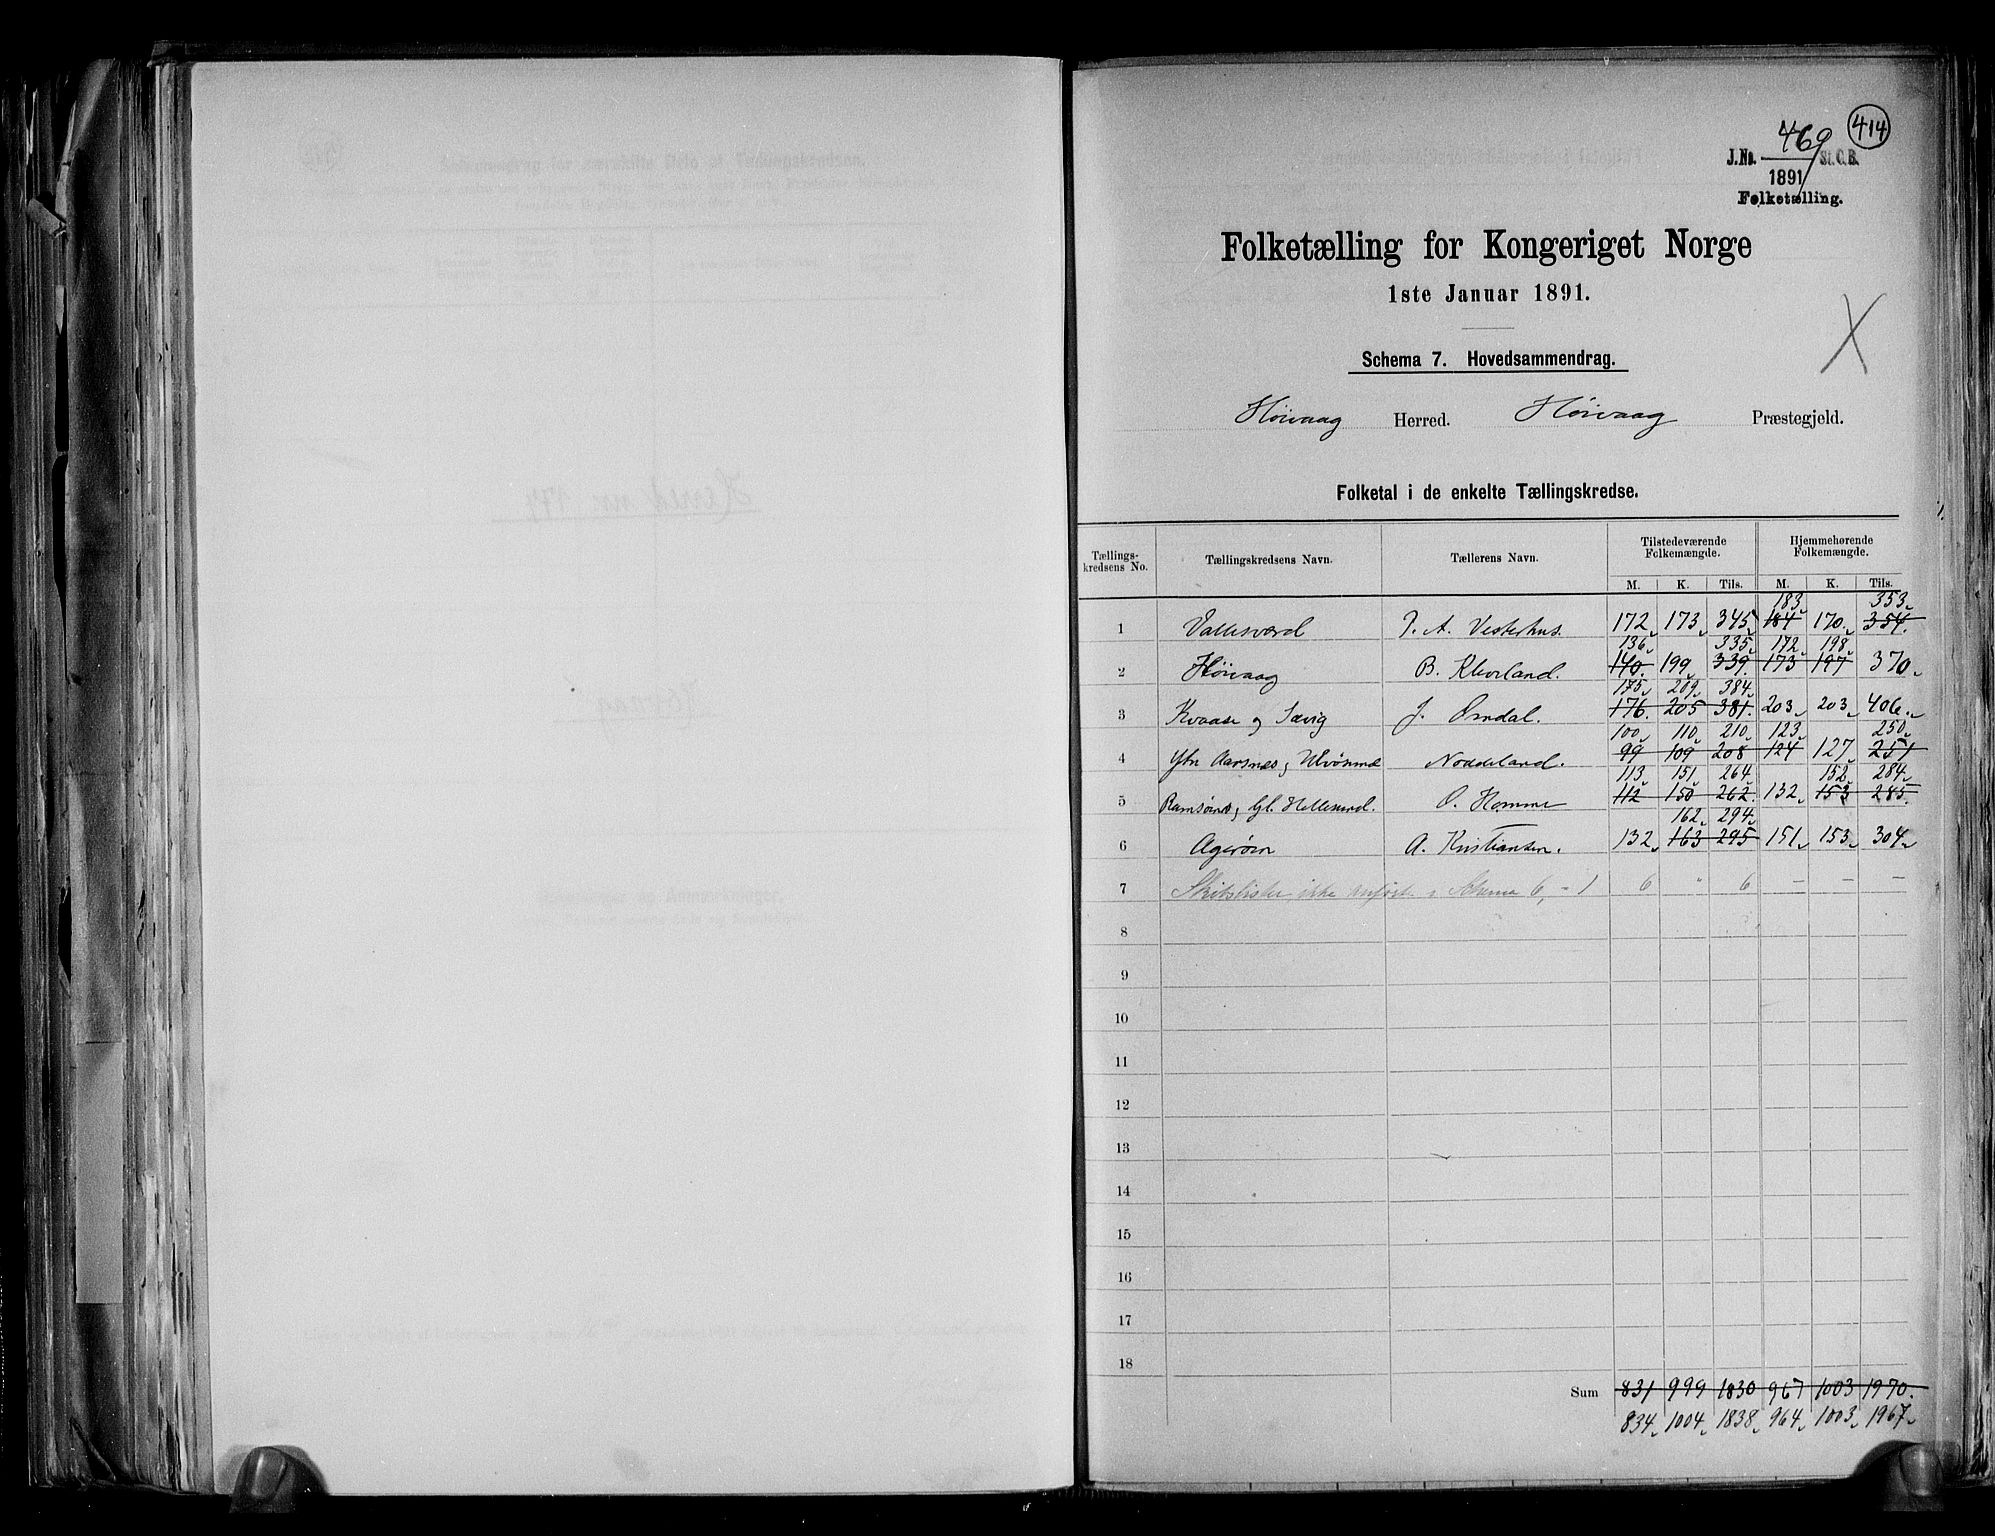 414
J.No. 469 St. C. B.
1891
Folketælling.
Folketælling for Kongeriget Norge
1ste Januar 1891.
Schema 7. Hovedsammendrag.
Høivaag Herred. Høivaag Præstegjeld.
Folketal i de enkelte Tællingskredse.
Tællings-kredsens No. Tællingskredsens Navn. Tællerens Navn. Tilstedeværende Folkemængde. Hjemmehørende Folkemængde.
M. K. Tils. M. K. Tils.
183 353
1 Vallesværd J. A. Vesterhus. 172 173 345 184 170 354.
136 335 172 198
2 Høivaag B. Kleveland. 140. 199 339. 173 197 370
175 209 384
3 Kvaase og Sævig J. Omdal. 176. 205 381. 203 203 406
100 110 210 123 250
4 Ytr Aarsnes, Ulvøsund Noddeland. 99 109 208 124 127 251
113 151 264 152 284
5 Ramsøen, Gl. Hellesund. O. Homme 112 150 262. 132 153 285.
162 294
6 Agerøen A. Kristiansen. 132 163 295 151 153 304
7 Skibslister ikke anført i Schema 6, - 1 6 " 6 — — —
8
9
10
11
12
13
14
15
16
17
18
Sum 831 999 1830 967 1003 1970.
834 1004 1838 964 1003 1967